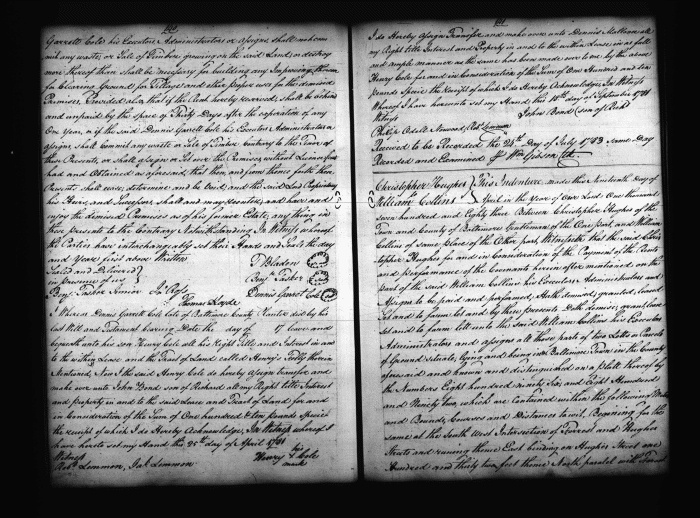 Garrett Cole his Executors Administrators or Assigns shall not com
mit any waste, or Sale of Timber growing on the said Land, or destroy
more thereof than shall be necessary for building any Improving thereon
for clearing Ground for Tillage and other purposes for the demised
Premises. Provided also that if the Rent hereby reserved, shall be behind
and unpaid by the space of Thirty Days after the expiration of any
One Year, or if the said Dennis Garrett Cole his Executors Administrators or
Assigns shall Commit any waste or Sale of Timber Contrary to the Tenor of
these Presents, or shall Assign or Set over the Premises, without License first
had and Obtained as aforesaid, that then, and from thence forth these
Presents shall cease, determine, and be Void and the said Lord Proprietary
his Heirs, and Successors shall and may reenter, and have and
enjoy the demised Premises as of his former Estate, any thing in
these present to the Contrary Notwithstanding. In Witness whereof
the Parties have interchangeably set their Hands and Seals the day
and Year first above Written
Sealed and Delivered
in presence of us
T Bladen
Benj. Tasker
Dennis Garrot Cole
Benj. Tasker Junior
Ja. Ross
Thomas Lloyde
Whereas Dennis Garrett Cole of Baltimore County Planter did by his
last Will and Testament bearing Date the day of 17 leave and
bequeath unto his son Henry Cole all his Right Title and Interest in and
to the within Lease and the Tract of Land called Henry's Folly therein
Mentioned, Now I the said Henry Cole do hereby Assign transfer and
make over unto John Bond son of Richard all my Right title Interest
and property in and to the said Lease and Tract of Land for and
in Consideration of the Sum of One hundred & ten pounds Specie
the receipt of which I do Hereby Acknowledge, In Witness whereof I
have hereto set my Hand this 25th day of April 1781
Witness
Robt. Lemmon, Jak. Lemmon
his
Henry Cole
mark
I do Hereby Assign Transfer and make over unto Dennis Mallion all
my Right title Interest and Property in and to the within Lease in as full
and ample manner as the same has been made over to me by the above
Henry Cole for and in Consideration of the Sum of One Hundred and ten
pounds Specie the Receipt of which I do Hereby Acknowledge, In Witness
Whereof I have hereunto set my Hand this 18th day of September 1781
Witness
John Bond son of Richd
Philip Odell Norwood, Robt Lemmon
Received to be Recorded the 24th Day of July 1783 same Day
Recorded and Examined Wm Gibson Clk.
Christopher Hughes
William Collins
This Indenture made this Nineteenth Day of
April in the Year of our Lord One thousand
seven hundred and Eighty three Between Christopher Hughes of the
Town and County of Baltimore Gentleman of the One part, and William
Collins of same place of the Other part, Witnesseth that the said Chris-
topher Hughes for and in Consideration of the Payment of the Rents
and performance of the Covenants herein after mentioned on the
part of the said William Collins his Executors Administrators and
Assigns to be paid and performed, Hath demised, granted, leased
and to farm let, and by these Presents Doth demise, grant, lease
set and to farm lett unto the said William Collins his Executors
Administrators and Assigns all those parts of two Lotts or Parcels
of Ground situate, lying and being in Baltimore Town in the County
aforesaid and known and distinguished on a platt thereof by
the Numbers Eight hundred ninety six, and Eight Hundred
and Ninety two, which are Contained within the following Metes
and Bounds, Courses and Distances towit, Beginning for the
same at the South West Intersection of Forrest and Hughes
Streets and running thence East binding on Hughes Street one
Hundred and thirty two feet thence North parralel with Forrest